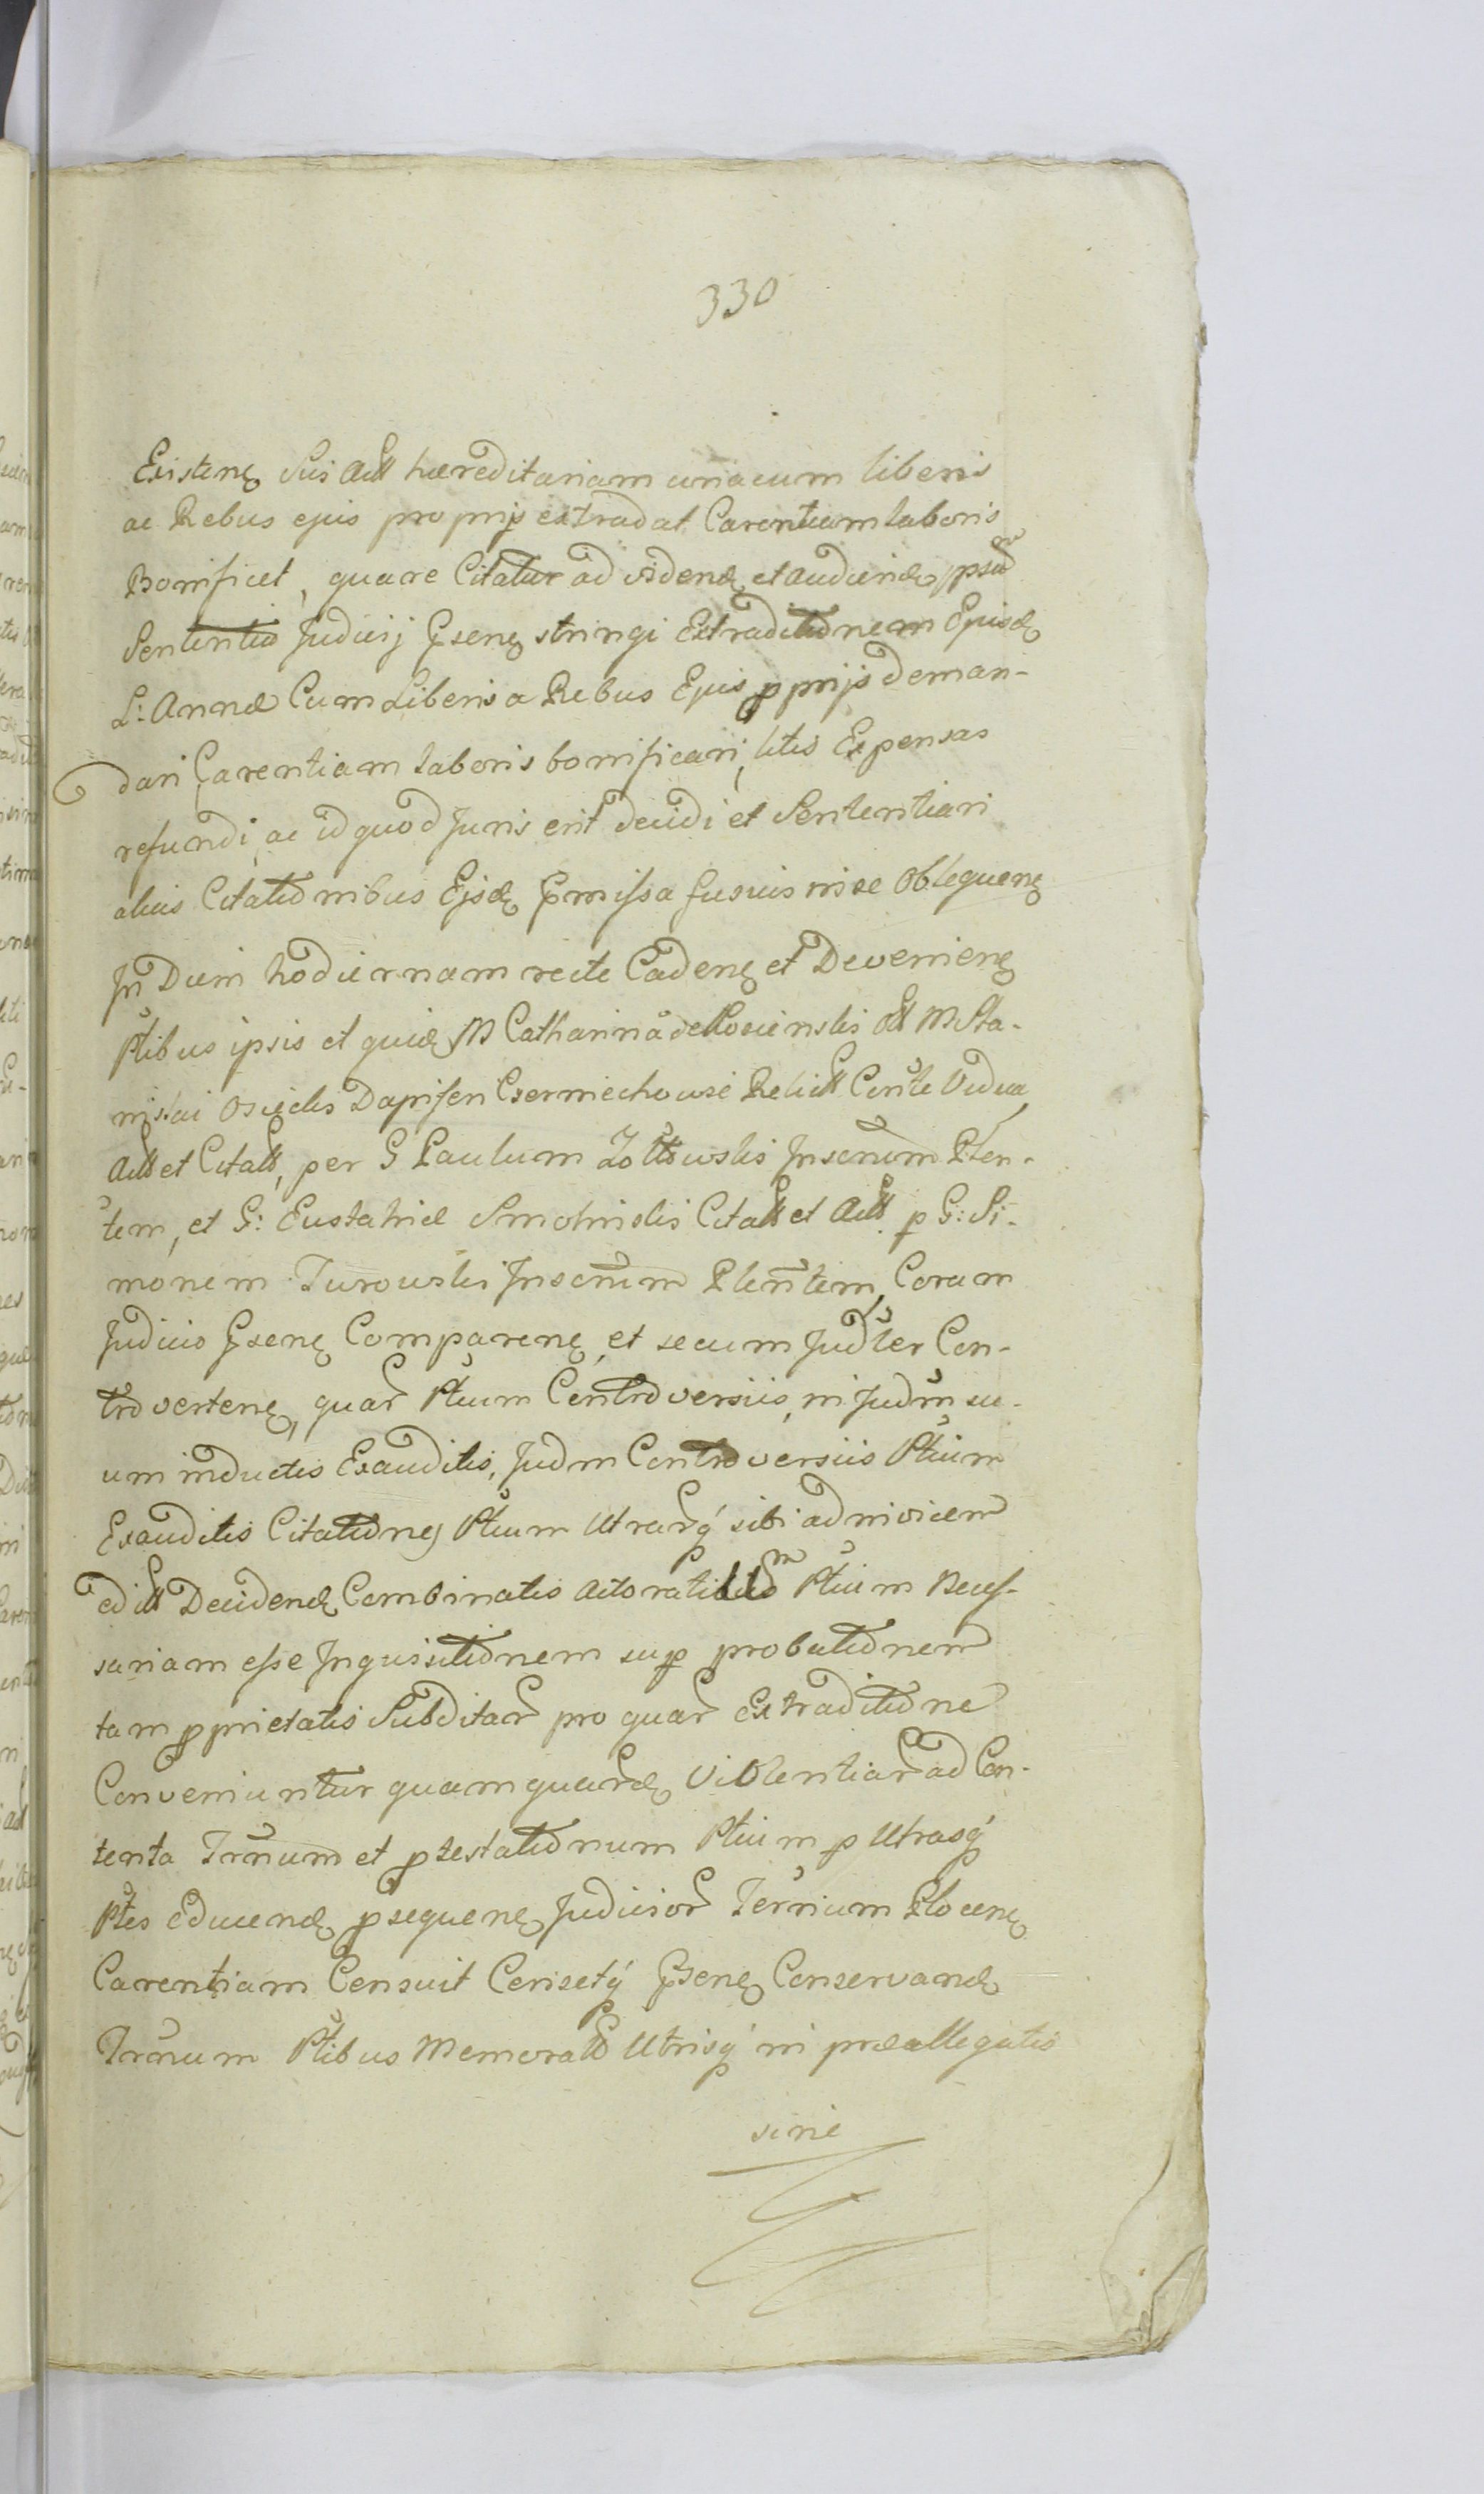 330
Existenẽ Sui Actt hæreditariam unacum liberis
ac Rebus ejus proprijs extradat Carentiam laboris
Bonificet, quare Citatur ad videnđ et audienđ ipsũm
Sententia Judicij Pñsenẽ stringi Extraditionem Ejusđ
L: Annæ Cum Liberis a Rebus Ejus pprijs deman-
dari Carentiam laboris bonificari, litis Expensas
refundi, ac id quod Juris erit decidi et Sententiari
aliis Citationibus Ejsđ Pñmissa fusius in se Obloquenẽ
In Diem hodiernam recte Cadenẽ et Devenienẽ
Ptibus ipsis et quiđ M Catharina de olt M Sta-
nislai Osiecki Dapiferi Czerniechowie Relictt Conte Vidua,
Actt et Citatt, per G Paulum Zołtowski Inscrium Plen-
tem, et G: Eustahie Smolinski Citatt et Actt p G: Si-
monem Turowski Inscrium Plentem, Coram
Judicio Pñsenẽ Comparenẽ, et secum Judler Con-
trovertenẽ, quar Ptium Controversiis, in Judm su-
um inductis Exauditis, Judm Controversiis Ptium
Exauditis Citationes Ptium Utrarq sibi ad invicem
edictt Decidenđ Combinatis Actoratibus Ptium Necess-
sariam esse Inquisitionem sup probationem
tam pprietatis Subditar pro quar Extraditione
Conveniuntur quam quarđ Violentiar ad Con-
tenta Trnum et ptestationum Ptium p Utrasq
Ptes Educenđ psequenẽ Judicior Terrium Plocenẽ
Carentiam Censuit Censetq Pñsenẽ Conservanđ
Trnum Ptibus Memoratt Utrisq in præallegatis
sine